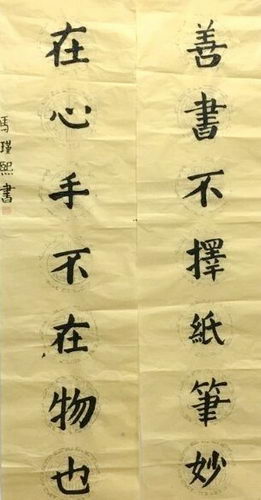 善書不擇紙筆妙
在心手不在物也
馬瑾熙書